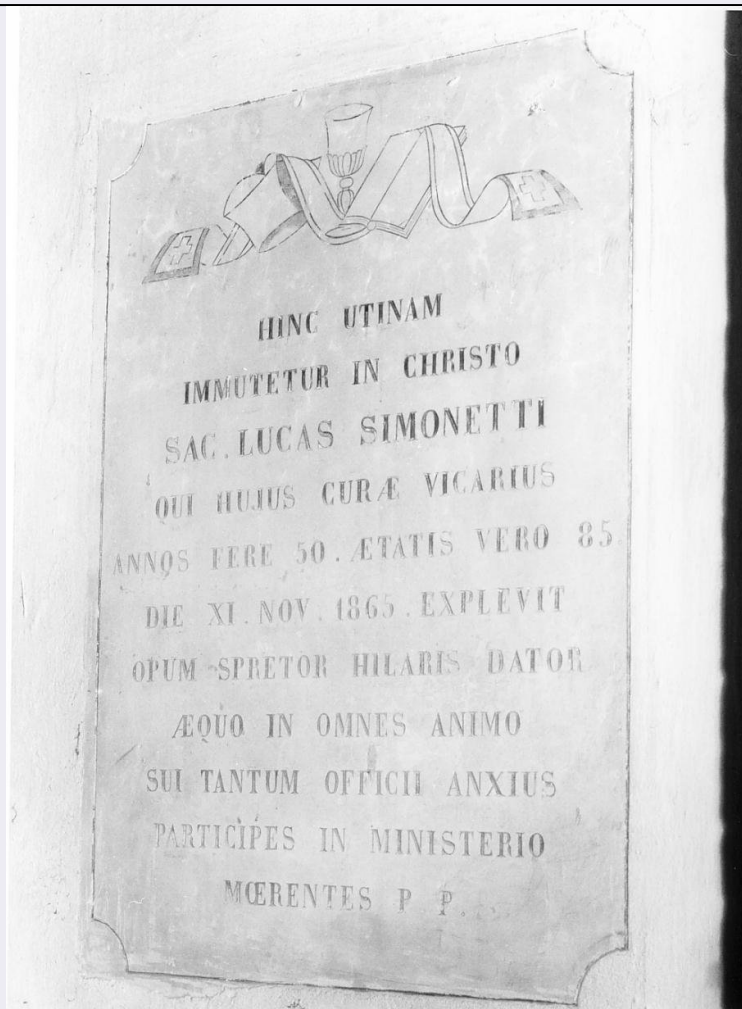 HINC UTINAM
IMMUTETUR IN CHRISTO
SAC. LUCAS SIMONETTI
QUI HUJUS CURÆ VICARIUS
ANNOS FERE 50. ÆTATIS VERO 85
DIE XI. NOV. 1865. EXPLEVIT
OPUM SPRETOR HILARIS DATOR
ÆQUO IN OMNES ANIMO
SUI TANTUM OFFICII ANXIUS
PARTICIPES IN MINISTERIO
MŒRENTES P. P.